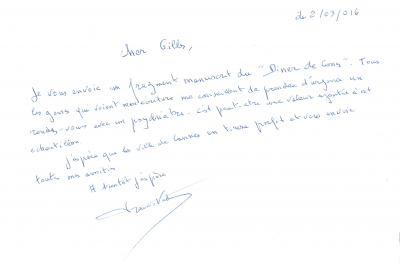 le 2/03/016
Cher Gilles,
Je vous envoie un fragment manuscrit du "Diner de Cons". Tous
les gens qui voient mon écriture me conseillent de prendre d'urgence un
rendez-vous avec un psychiatre. C'est peut-être une valeur ajoutée à cet
échantillon.
J'espère que la ville de Cannes en tirera profit et vous envoie
toutes mes amitiés
A bientôt j'espère